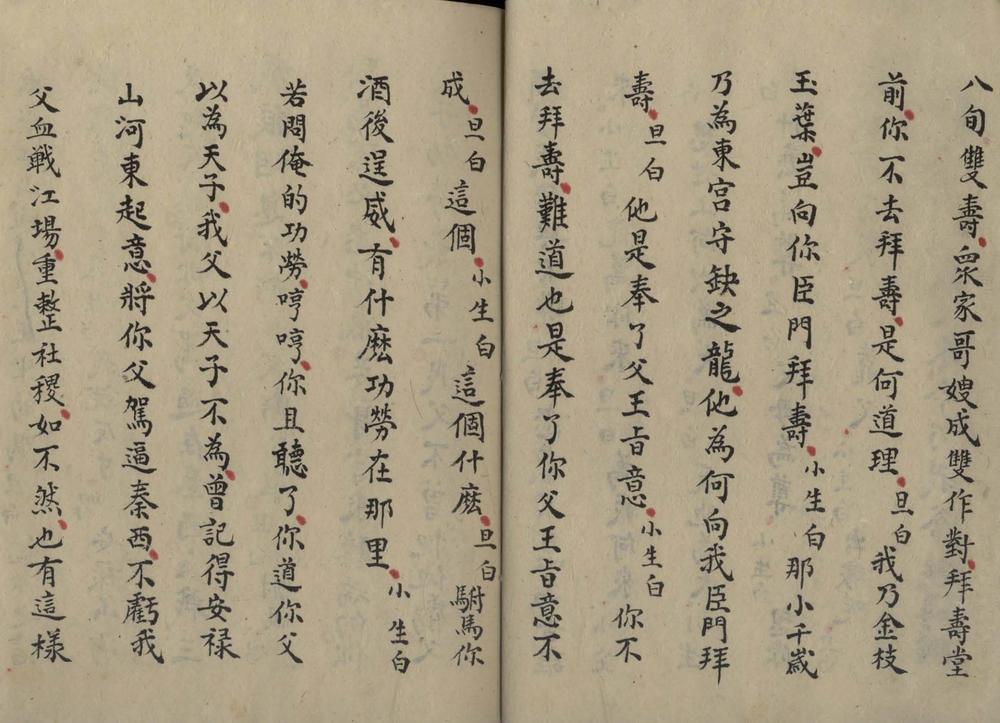 八旬雙壽眾家哥嫂成雙作對拜壽堂
前你不去拜壽是何道理旦白我乃金枝
玉葉豈向你臣門拜壽小生白那小千歲
乃為東宮守缺之龍他為何向我臣門拜
壽旦白他是奉了父王旨意小生白你不
去拜壽難道也是奉了你父王旨意不
成旦白這個小生白這個什麽旦白駙馬你
酒後逞威有什麽功勞在那里小生白
若問俺的功勞哼哼你且聽了你道你父
以為天子我父以天子不為曾記得安祿
山河東起意將你父駕逼秦西不虧我
父血戰江場重整社稷如不然也有這樣